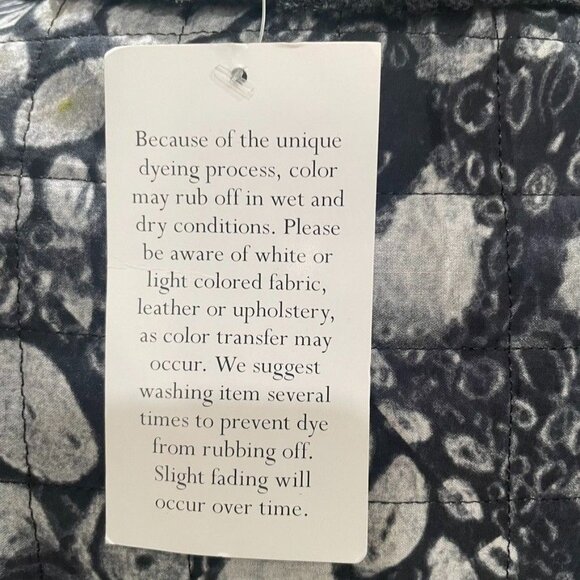 Because of the unique
dyeing process, color
may rub off in wet and
dry conditions. Please
be aware of white or
light colored fabric,
leather or upholstery,
as color transfer may
occur. We suggest
washing item several
times to prevent dye
from rubbing off.
Slight fading will
occur over time.